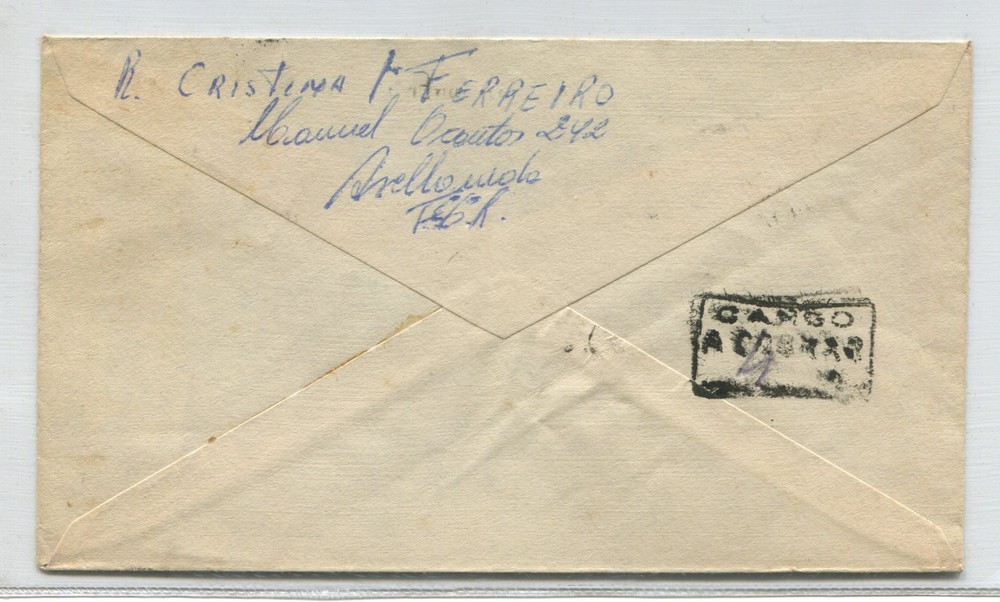 R. CRISTINA M FERREIRO
Manuel Ocantos 242
Avellaneda
CARGO
A COBRAR